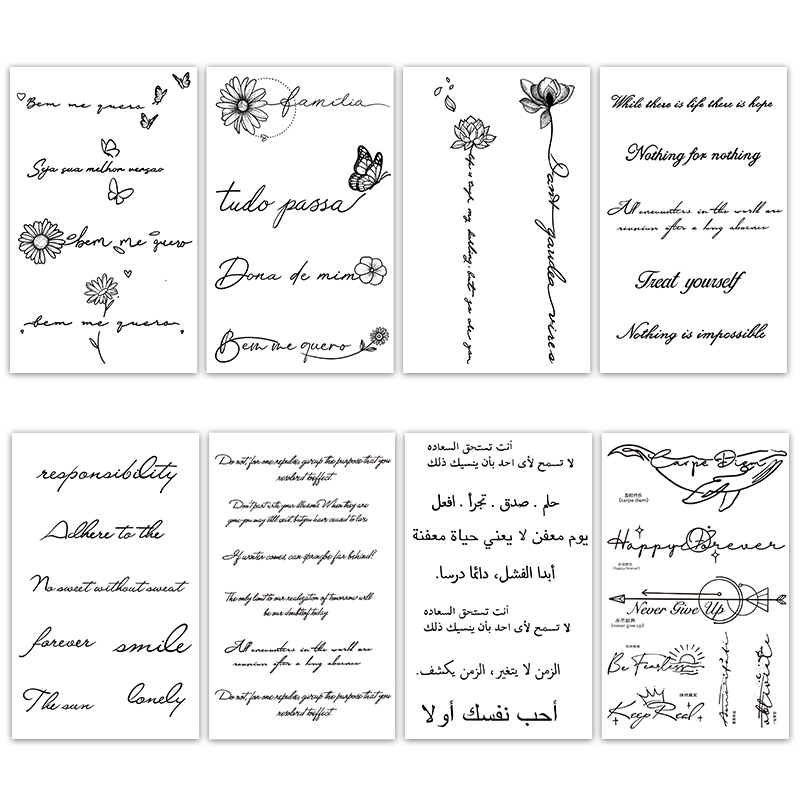 Bem me quero
Seja sua melhor versao
bem me quero
bem me quero
família
tudo passa
Dona de mim
Bem me quero
life is tough my darling, but so are you
Dant gaudea vires
While there is life there is hope
Nothing for nothing
All encounters in the world are
reunion after a long absence
Treat yourself
Nothing is impossible
responsibility
Adhere to the
No sweet without sweat
forever smile
The sun lonely
Do not, for one repulse, give up the purpose that you
resolved to effect.
Don't part with your illusions. When they are
gone you may still exist, but you have ceased to live
If winter comes, can spring be far behind?
The only limit to our realization of tomorrow will
be our doubts of today
All encounters in the world are
reunion after a long absence
Do not, for one repulse, give up the purpose that you
resolved to effect.
أنت تستحق السعاده
لا تسمح لأى احد بأن ينسيك ذلك
حلم . صدق . تجرأ . افعل
يوم معفن لا يعني حياة معفنة
أبدا الفشل، دائما درسا.
أنت تستحق السعاده
لا تسمح لأى احد بأن ينسيك ذلك
الزمن لا يتغير ، الزمن يكشف.
أحب نفسك أولا
Carpe Diem
及时行乐
(carpe diem)
Happy Forever
永远快乐
(happy forever)
Never Give Up
永不放弃
(never give up)
Be Fearless
Keep Real
保持真实